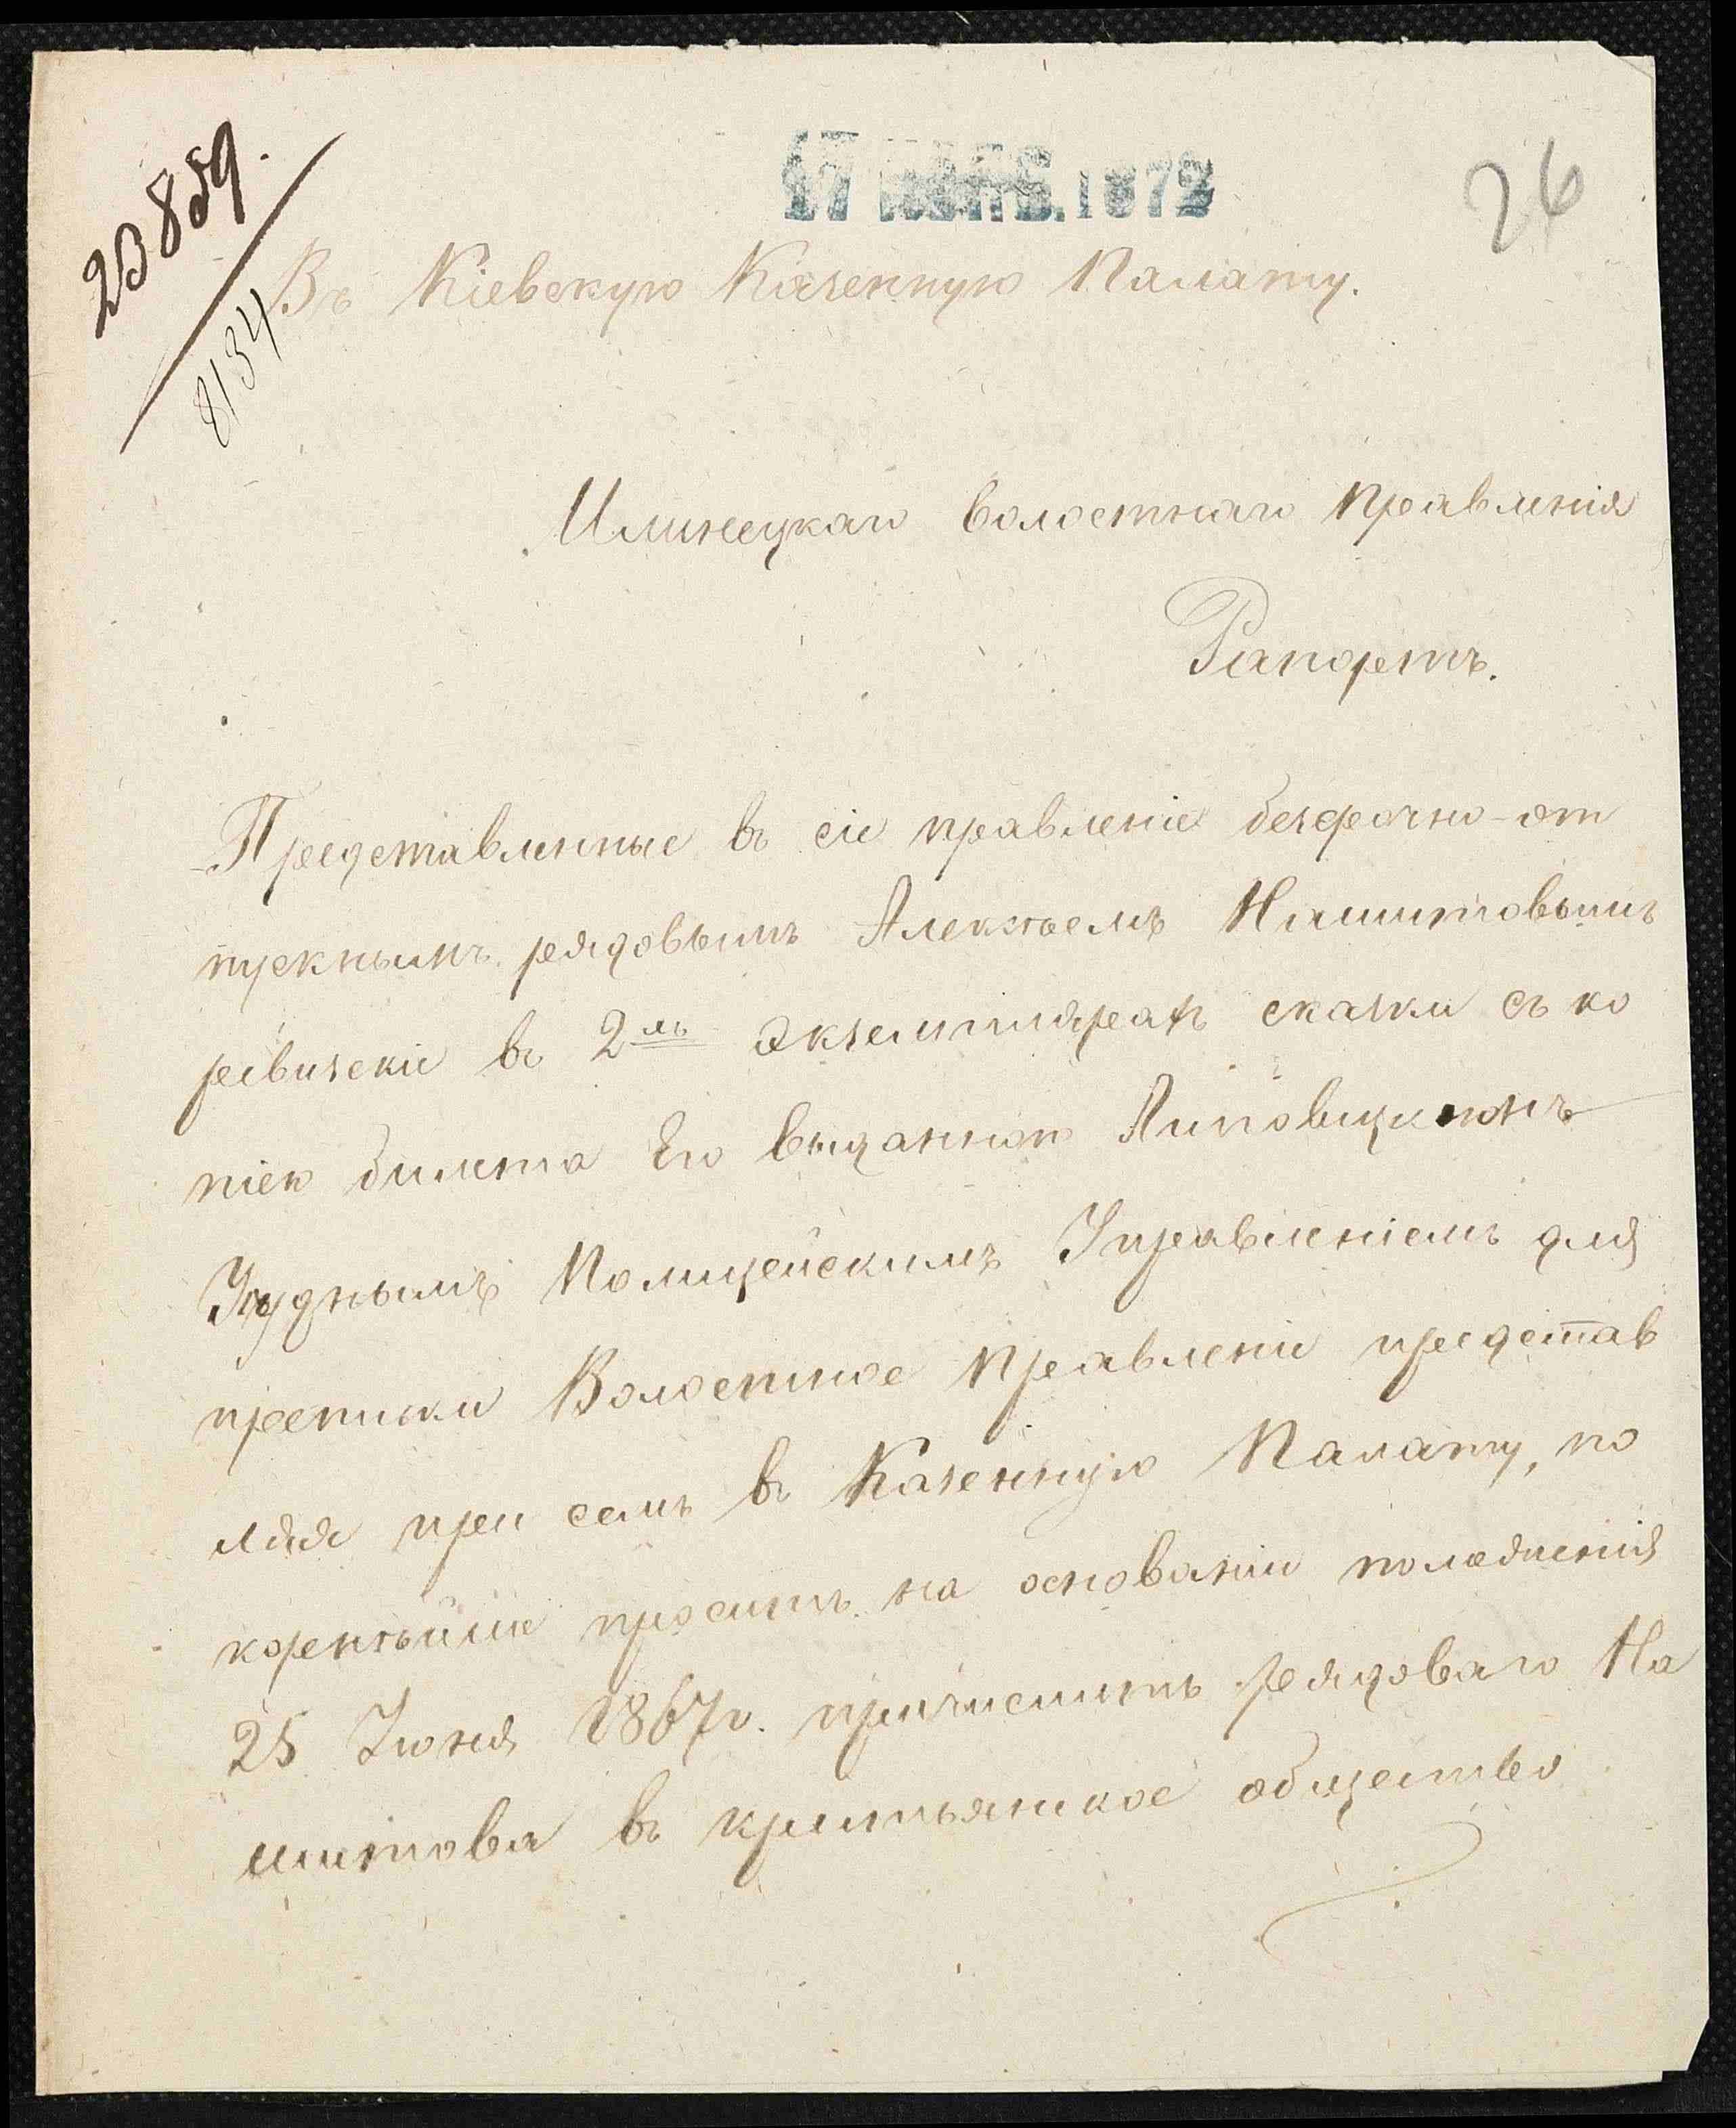 23859.
8134
17 1872
26
Въ Кіевскую Казенную Палату.
Илинецкаго волостнаго Правленія
Рапортъ.
Представленные въ сіе правленіе безсрочно-от
пускнымъ рядовымъ Алексѣемъ Нашитовымъ
ревизскіе въ 2мъ экземплярах сказки съ ко
піею билета Его выданнаго Липовецкимъ
Уѣзднымъ Полицейскимъ Управленіемъ для
прописки Волостное Правленіе представ
ляя при семъ въ Казенную Палату, по
корнѣйше проситъ на основаніи положенія
25 Іюня 1867г. причислить рядоваго На
шитова въ крестьянское общество